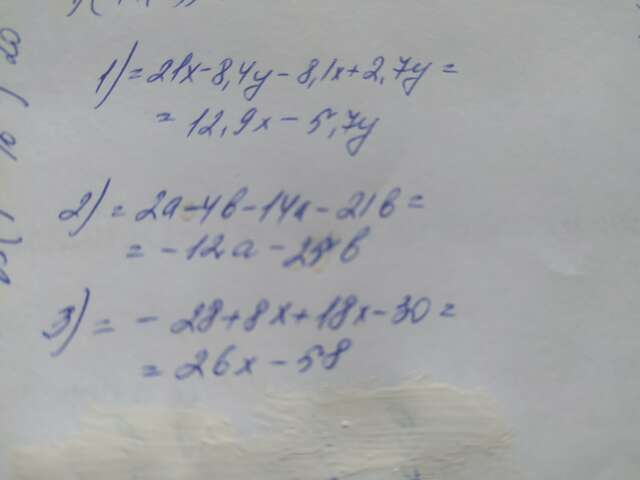 1) = 21x - 8,4y - 8,1x + 2,7y =
= 12,9x - 5,7y
2) = 2a - 4b - 14a - 21b =
= -12a - 25b
3) = - 28 + 8x + 18x - 30 =
= 26x - 58